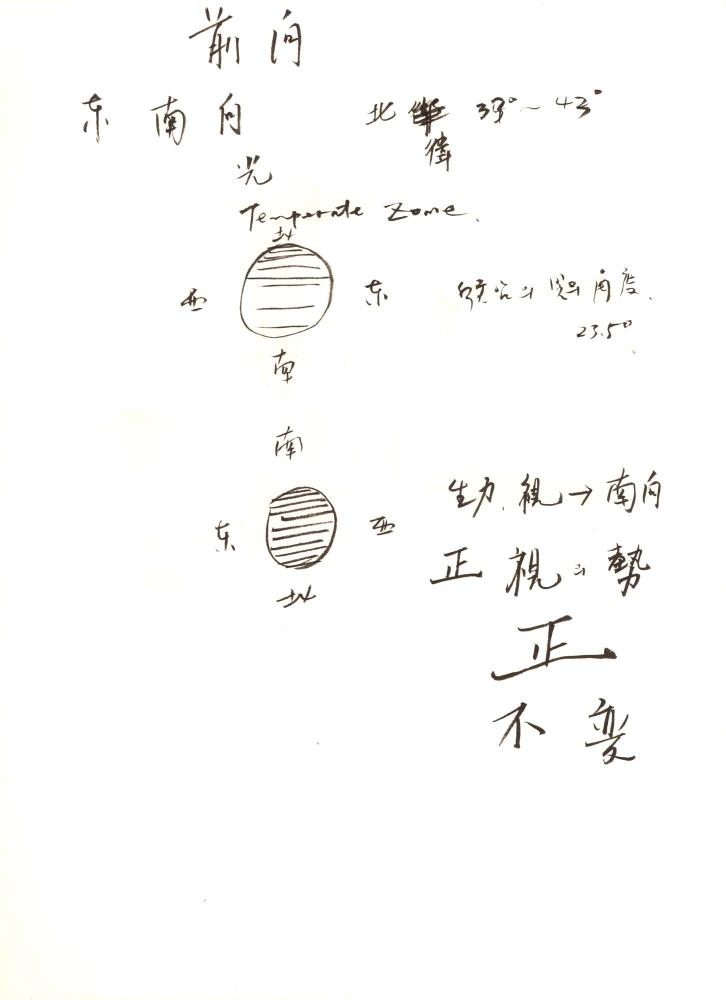 前向
东南向 北 緯 39°~43°
光
Temperate Zone.
北
西 东 의 角度.
23.5°
南
南
生力.視→南向
东 西
正視의 勢
北
正
不変